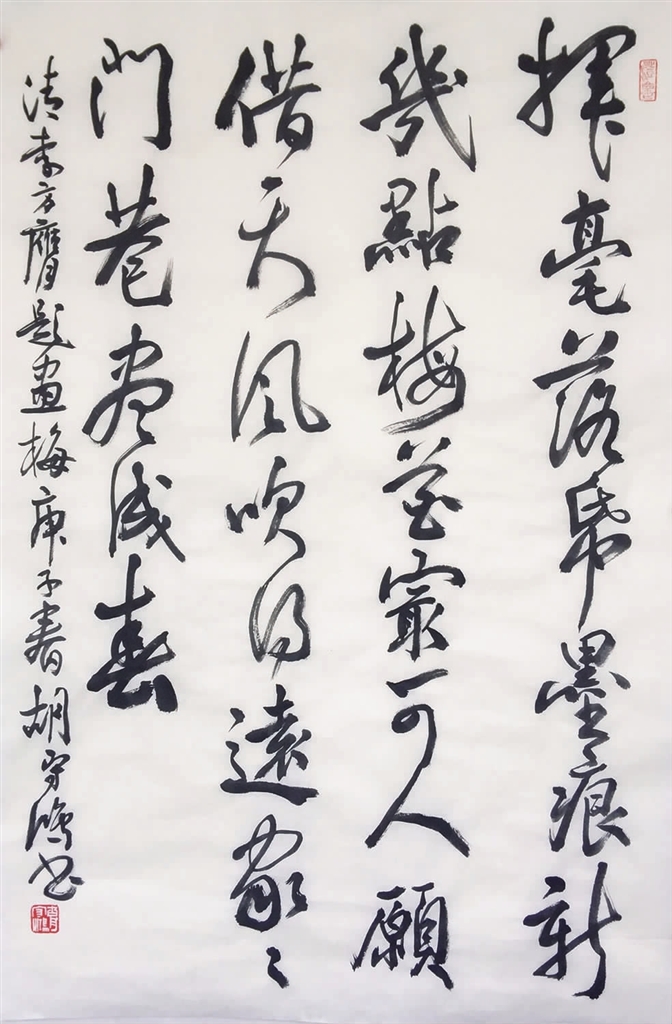 揮毫落帋墨痕新
幾點梅花最可人願
借天風吹得遠家〻
門巷盡成春
清李方膺題畫梅庚子春胡守鴻書